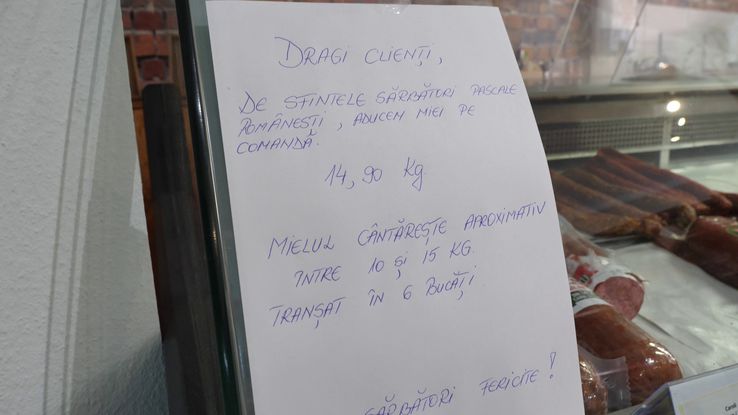 DRAGI CLIENȚI,
DE SFINTELE SĂRBĂTORI PASCALE
ROMÂNEȘTI, ADUCEM MIEI PE
COMANDĂ.
14,90 Kg.
MIELUL CÂNTĂREȘTE APROXIMATIV
ÎNTRE 10 și 15 KG.
TRANȘAT ÎN 6 BUCĂȚI.
SĂRBĂTORI FERICITE!